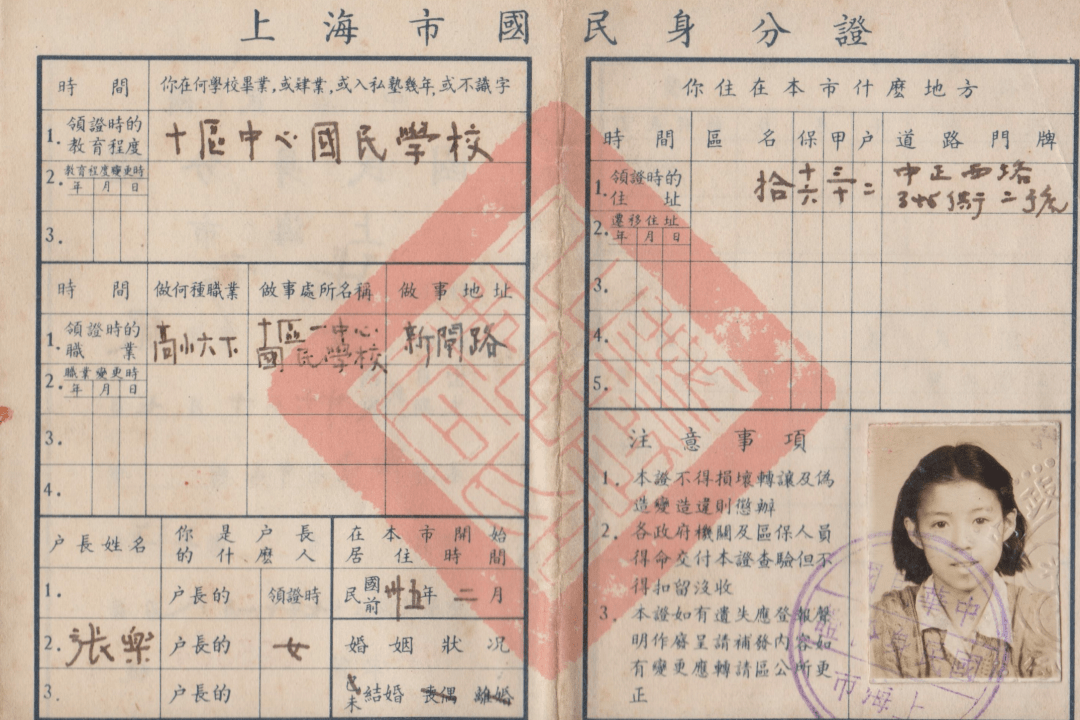 上海市國民身分證
時間 你在何學校畢業,或肄業,或入私塾幾年,或不識字
1. 領證時的教育程度 十區中心國民學校
2. 教育程度變更時 年月日
3.
時間 做何種職業 做事處所名稱 做事地址
1. 領證時的職業 高小六下 十區一中心國民學校 新閘路
2. 職業變更時 年月日
3.
4.
戶長姓名 你是戶長的什麼人 在本市開始居住時間
1. 戶長的 領證時 民國前 卅五年 二月
2. 張樂 戶長的 女 婚姻狀況
3. 戶長的 已未結婚 喪偶 離婚
你住在本市什麼地方
時間 區名 保 甲 户 道路門牌
1. 領證時的住址 拾 十六 三十 二 中正西路
衖二號
2. 遷移住址 年月日
3.
4.
5.
注意事項
1. 本證不得損壞轉讓及偽
造變造違則懲辦
2. 各政府機關及區保人員
得命交付本證查驗但不
得扣留沒收
3. 本證如有遺失應登報聲
明作廢呈請補發內容如
有變更應轉請區公所更
正